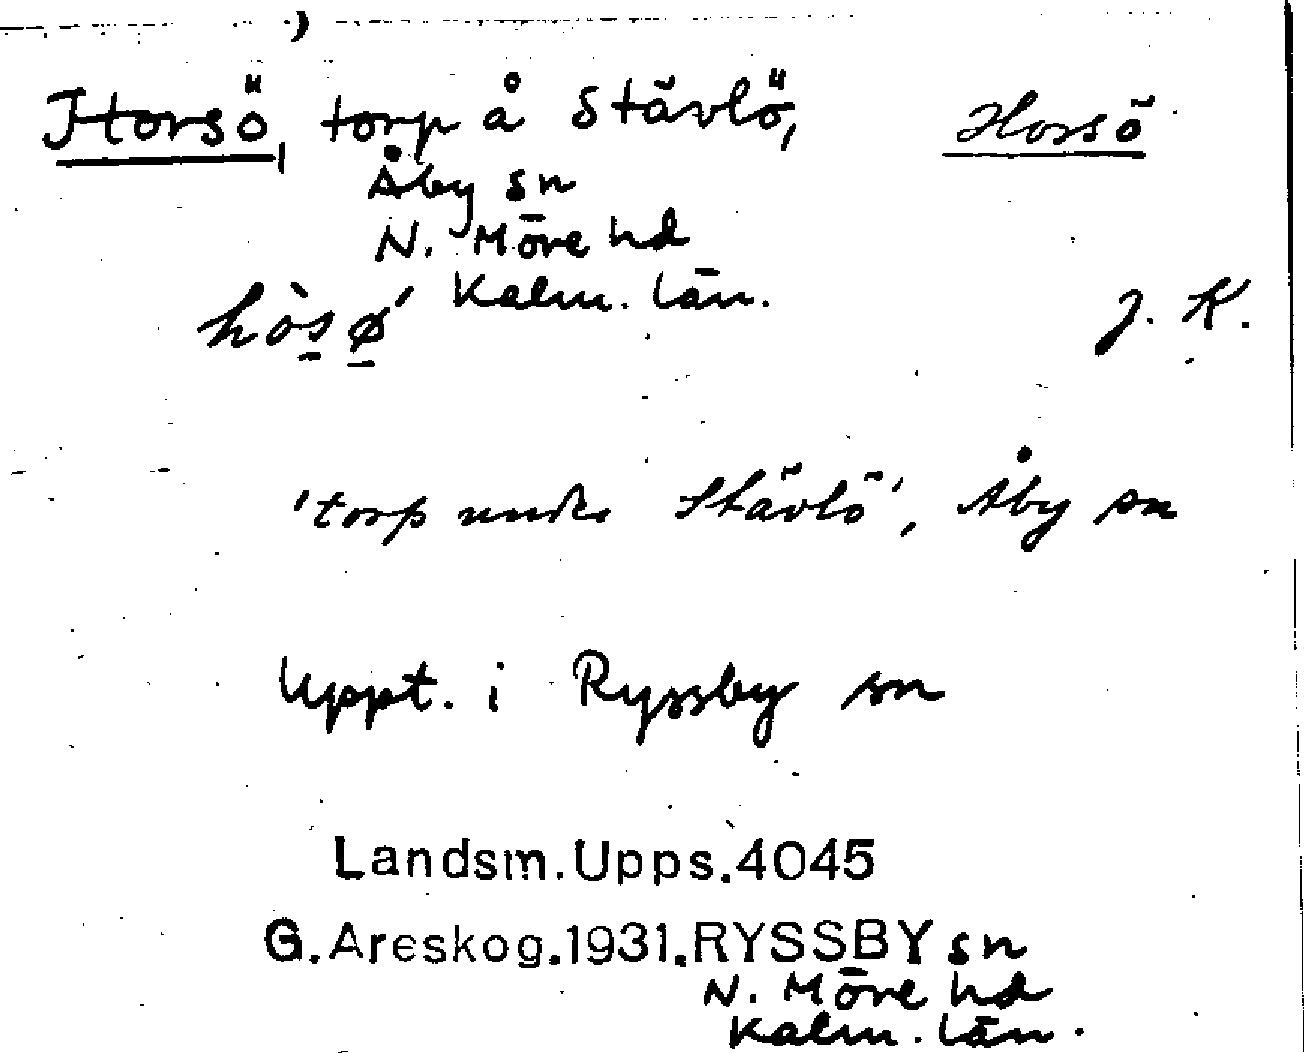 Horsö, torp å Stävlö, Horsö
Åby sn
N. Möre hd
Kalm. län.
hòsǿ J. K.
'torp under Stävlö', Åby sn
Uppt. i Ryssby sn
Landsm.Upps.4045
G.Areskog.1931.RYSSBY sn
N. Möre hd
Kalm. län.